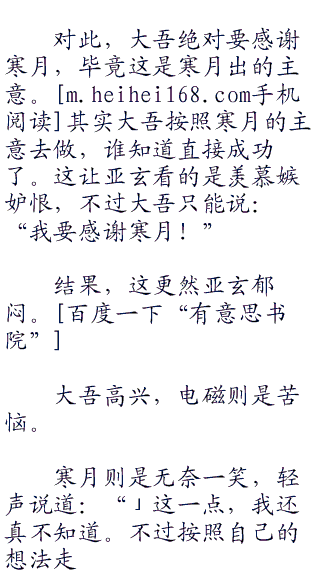 对此，大吾绝对要感谢
寒月，毕竟这是寒月出的主
意。[m.heihei168.com手机
阅读]其实大吾按照寒月的主
意去做，谁知道直接成功
了。这让亚玄看的是羡慕嫉
妒恨，不过大吾只能说：
“我要感谢寒月！”
结果，这更然亚玄郁
闷。[百度一下“有意思书
院”]
大吾高兴，电磁则是苦
恼。
寒月则是无奈一笑，轻
声说道：“」这一点，我还
真不知道。不过按照自己的
想法走